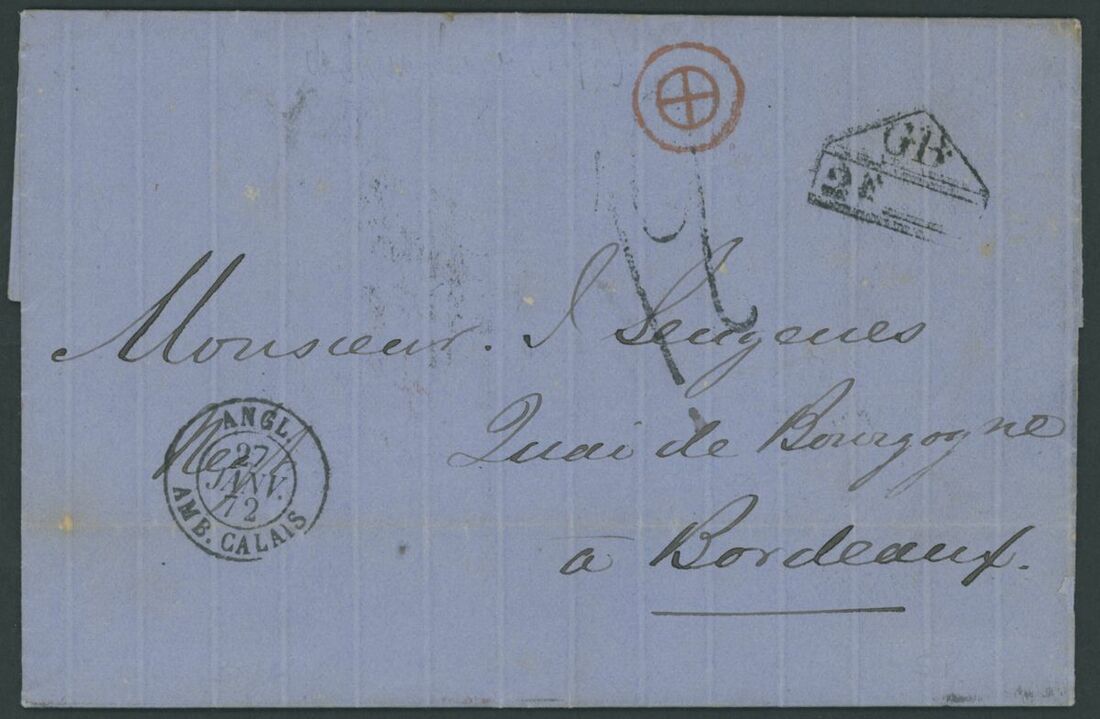 GB
2 F
Monsieur. J Sengenes
Quai de Bourgogne
à Bordeaux.
ANGL.
27
JANV.
72
AMB. CALAIS